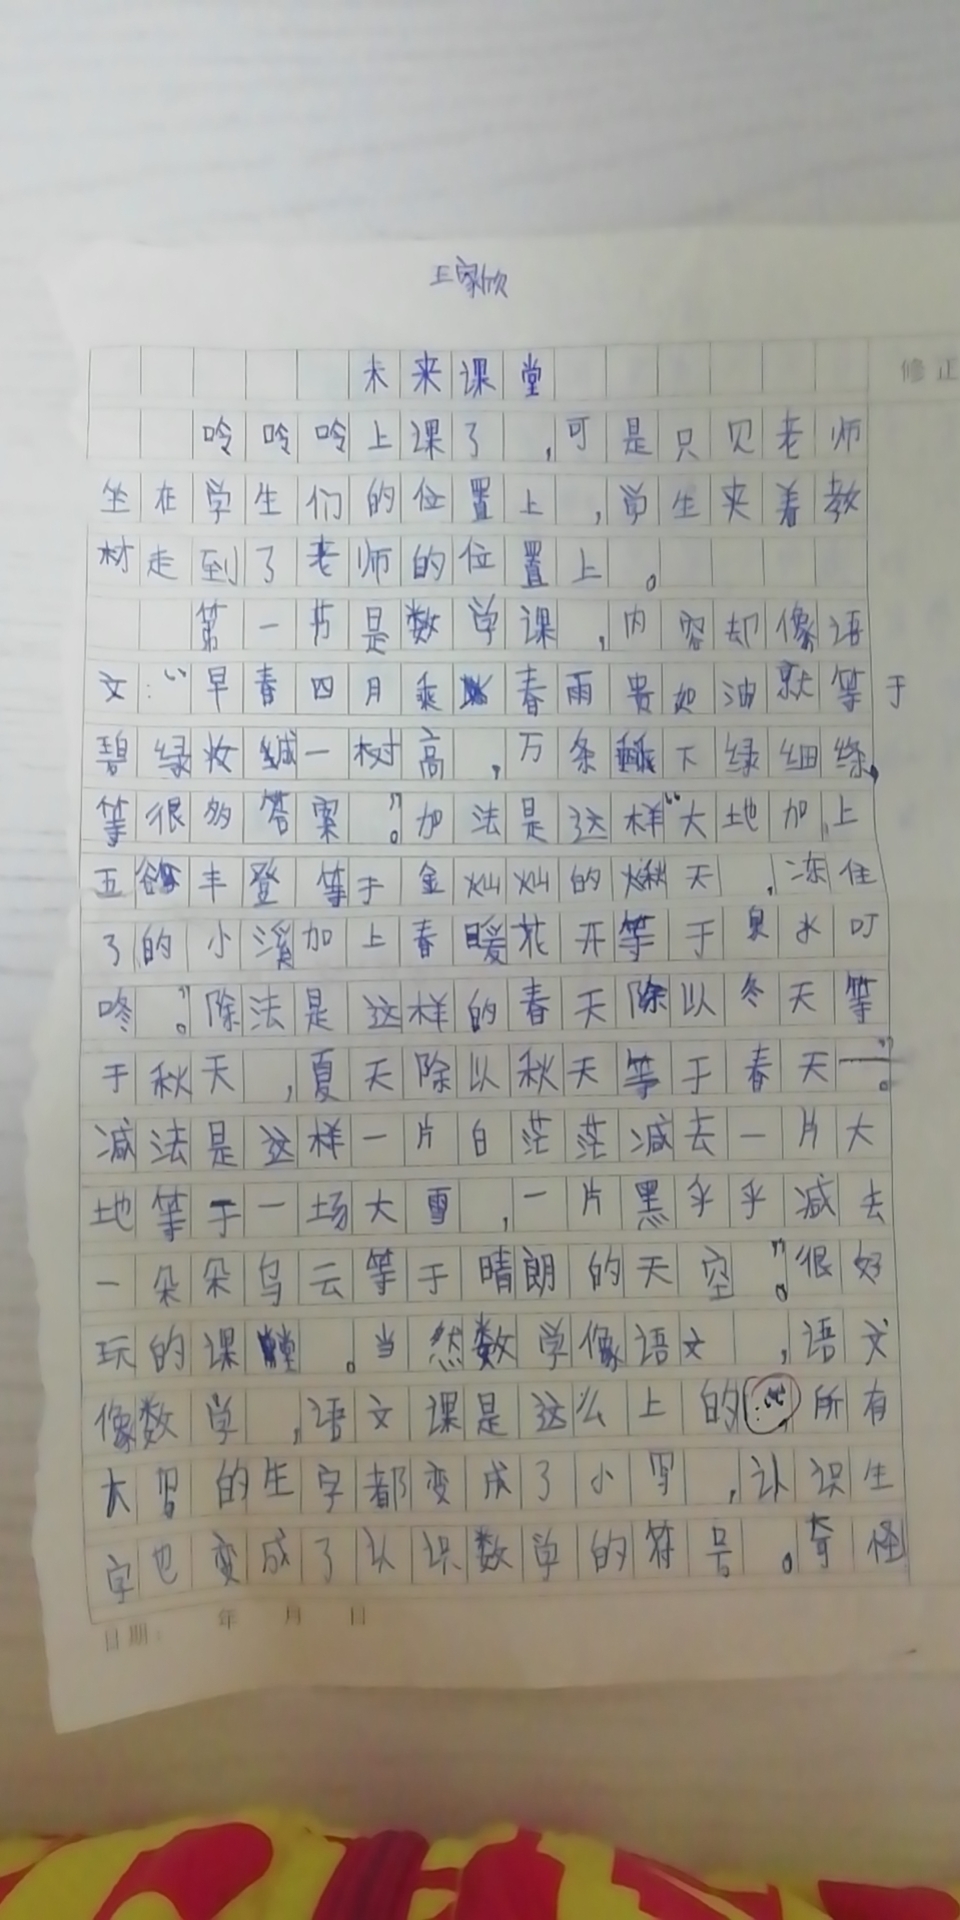 王家欣
修正
未来课堂
呤呤呤上课了,可是只见老师
坐在学生们的位置上,学生夹着教
材走到了老师的位置上。
第一节是数学课,内容却像语
文:“早春四月乘春雨贵如油就等于
碧绿妆一树高,万条下绿细绦,
等很多答案。”加法是这样“大地加上
五谷丰登等于金灿灿的秋天,冻住
了的小溪加上春暖花开等于泉水叮
咚。”除法是这样的春天除以冬天等
于秋天,夏天除以秋天等于春天——。”
减法是这样一片白茫茫减去一片大
地等于一场大雪,一片黑乎乎减去
一朵朵乌云等于晴朗的天空。”很好
玩的课堂。当然数学像语文,语文
像数学,语文课是这么上的:“所有
大写的生字都变成了小写,认识生
字也变成了认识数学的符号。奇怪
日期: 年 月 日